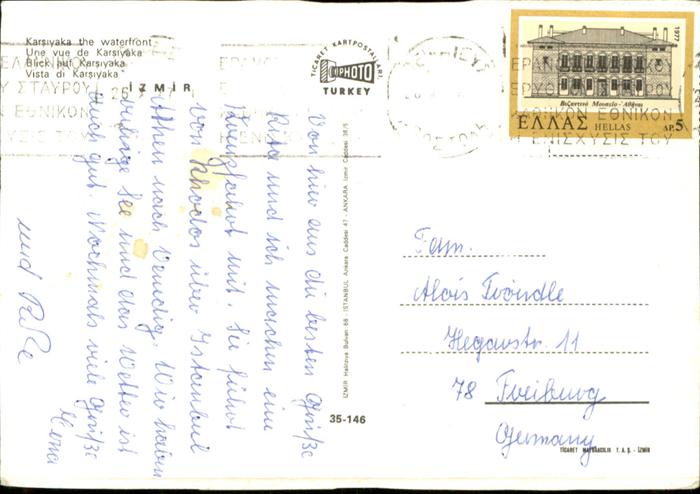 Karşıyaka the waterfront
Une vue de Karşıyaka
Blick auf Karşıyaka
Vista di Karşıyaka
İZMİR
TİCARET KARTPOSTALLARI
PHOTO
TURKEY
1977
Βυζαντινό Μουσείο - Αθήναι
ΕΛΛΑΣ HELLAS ΔΡ. 5
ΣΤΑΥΡΟΥ
ΕΘΝΙΚΟΝ
ΕΘΝΙΚΟΝ
ΕΝΙΣΧΥΣΙΣ ΤΟΥ
Von hier aus die besten Grüße
Rita und ich machen eine
mit. Sie führt
von Rhodos über Istanbul
Athen nach Venedig. Wir haben
ruhige See und das Wetter ist
auch gut. Nochmals viele Grüße
und
İZMİR Halitziya Bulvarı 68 - İSTANBUL Ankara Caddesi 47 - ANKARA İzmir Caddesi 38/5
35-146
Fam.
Alois Tröndle
Hegaustr. 11
78 Freiburg
Germany
TİCARET MATBAACILIK T.A.Ş. - İZMİR